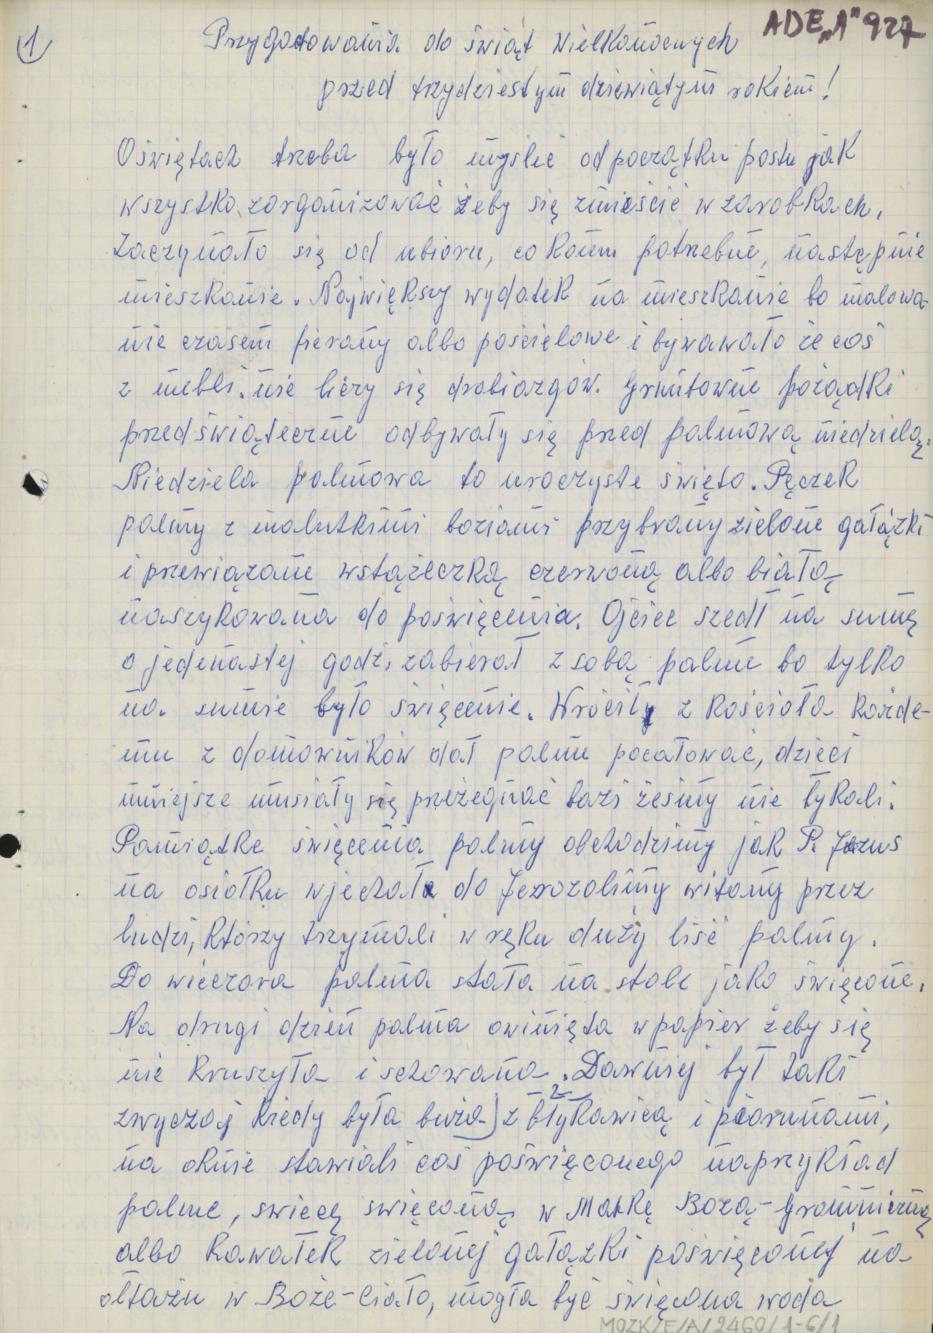 1
ADE„A" 927
Przygotowania do świąt Wielkanocnych
przed trzydziestym dziewiątym rokiem!
Oświętach trzeba było myslić od początku postu jak
wszystko zorganizować żeby się zmieścić w zarobkach.
Zaczynało się od ubioru, co komu potrzebne, następnie
mieszkanie. Największy wydatek na mieszkanie bo malowa-
nie czasem firany albo pościelowe i bywawało że coś
z mebli. nie liczy się drobiazgów. Gruntowne pożądki
przedświąteczne odbywały się przed palmową niedzielą.
Niedziela palmowa to uroczyste święto. Pęczek
palmy z malutkimi baziami przybrany zielone gałązki
i przewiązane wstążeczką czerwoną albo białą
naszykowana do poświęcenia. Ojciec szedł na sumę
o jedenastej godz. zabierał z sobą palme bo tylko
na sumie było święcenie. Wrócił z kościoła każde-
mu z domowników dał palme pocałować, dzieci
mniejsze musiały się przeżegnać bazi żeśmy nie łykali.
Pamiątke święcenia palmy obchodzimy jak P. Jezus
na osiołku wjechał do Jerozolimy witany przez
ludzi, którzy trzymali w ręku duży liść palmy.
Do wieczora palma stała na stole jako święcone.
Na drugi dzień palma owinięta w papier żeby się
nie kruszyła i schowana. Dawniej był taki
zwyczaj kiedy była buża z błykawicą i piorunami,
na oknie stawiali coś poświęconego naprzykład
palme, swiecę swięconą w Matkę Bożą-Gromniczną
albo kawałek zielonej gałązki poświęconej na
ołtażu w Boże-Ciało, mogła być święcona woda
MOZK/E/A/2460/1-6/1